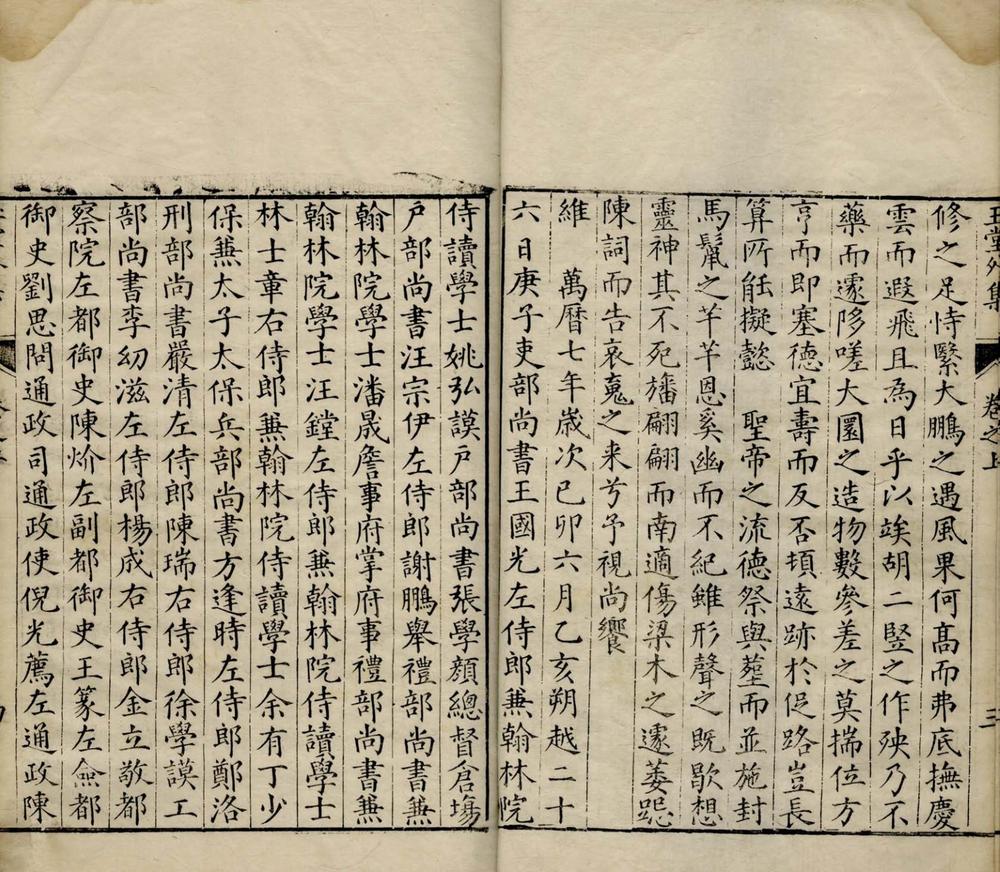 修之足恃繄大鵬之遇風果何高而弗底撫慶
雲而遐飛且為日乎以竢胡二竪之作殃乃不
藥而遽陊嗟大圜之造物數參差之莫揣位方
亨而即塞德宜壽而反否頓遠跡於促路豈長
算所能擬懿　聖帝之流德祭與塟而並施封
馬鬛之芊芊恩奚幽而不紀雖形聲之既歇想
靈神其不死旛翩翩而南適傷梁木之遽萎跽
陳詞而告哀䰟之来兮予視尚饗
維　萬曆七年歲次己卯六月乙亥朔越二十
六日庚子吏部尚書王國光左侍郎蒹翰林院
侍讀學士姚弘謨戶部尚書張學顔總督倉塲
戶部尚書汪宗伊左侍郎謝鵬舉禮部尚書蒹
翰林院學士潘晟詹事府掌府事禮部尚書蒹
翰林院學士汪鏜左侍郎蒹翰林院侍讀學士
林士章右侍郎蒹翰林院侍讀學士余有丁少
保蒹太子太保兵部尚書方逢時左侍郎鄭洛
刑部尚書嚴清左侍郎陳瑞右侍郎徐學謨工
部尚書李㓜滋左侍郎楊成右侍郎金立敬都
察院左都御史陳炌左副都御史王篆左僉都
御史劉思問通政司通政使倪光薦左通政陳
卷之上
三